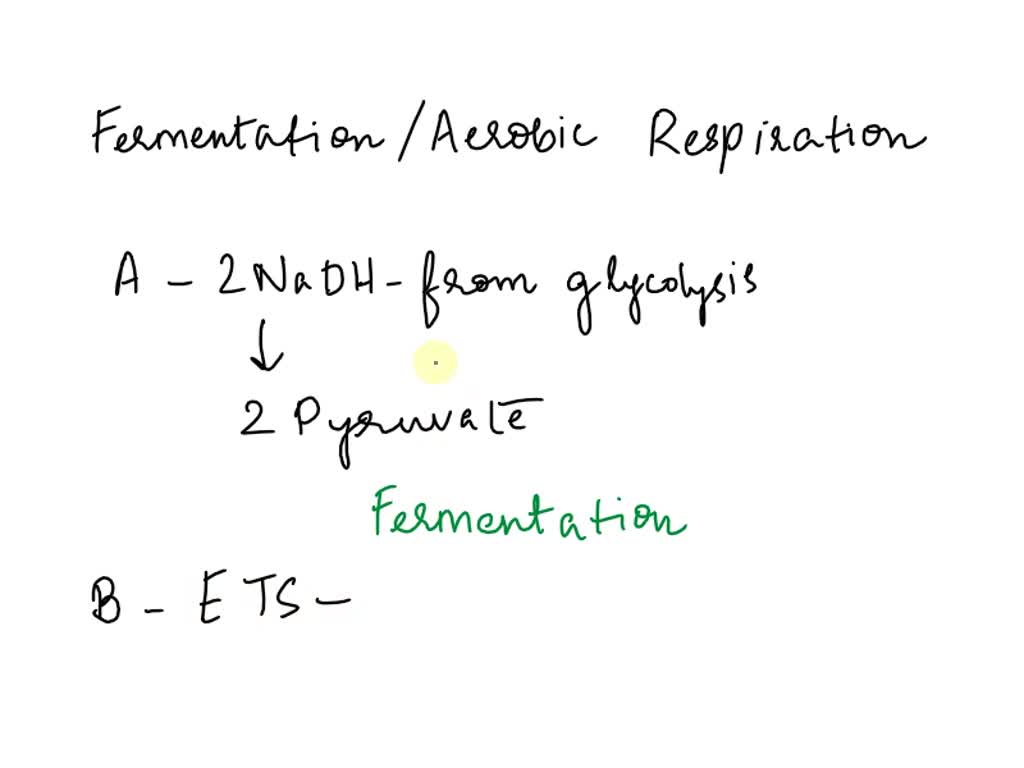 Fermentation/Aerobic Respiration
A - 2NaDH - from glycolysis
↓
2 Pyruvate
Fermentation
B - ETS -